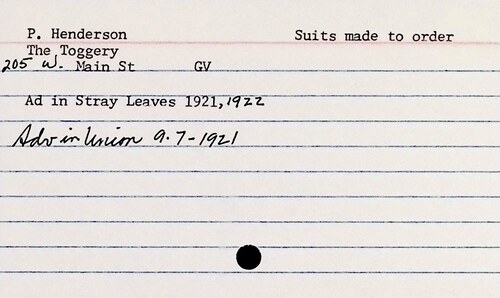 P. Henderson Suits made to order
The Toggery
205 W. Main St GV
Ad in Stray Leaves 1921, 1922
Adv in Union 9-7-1921